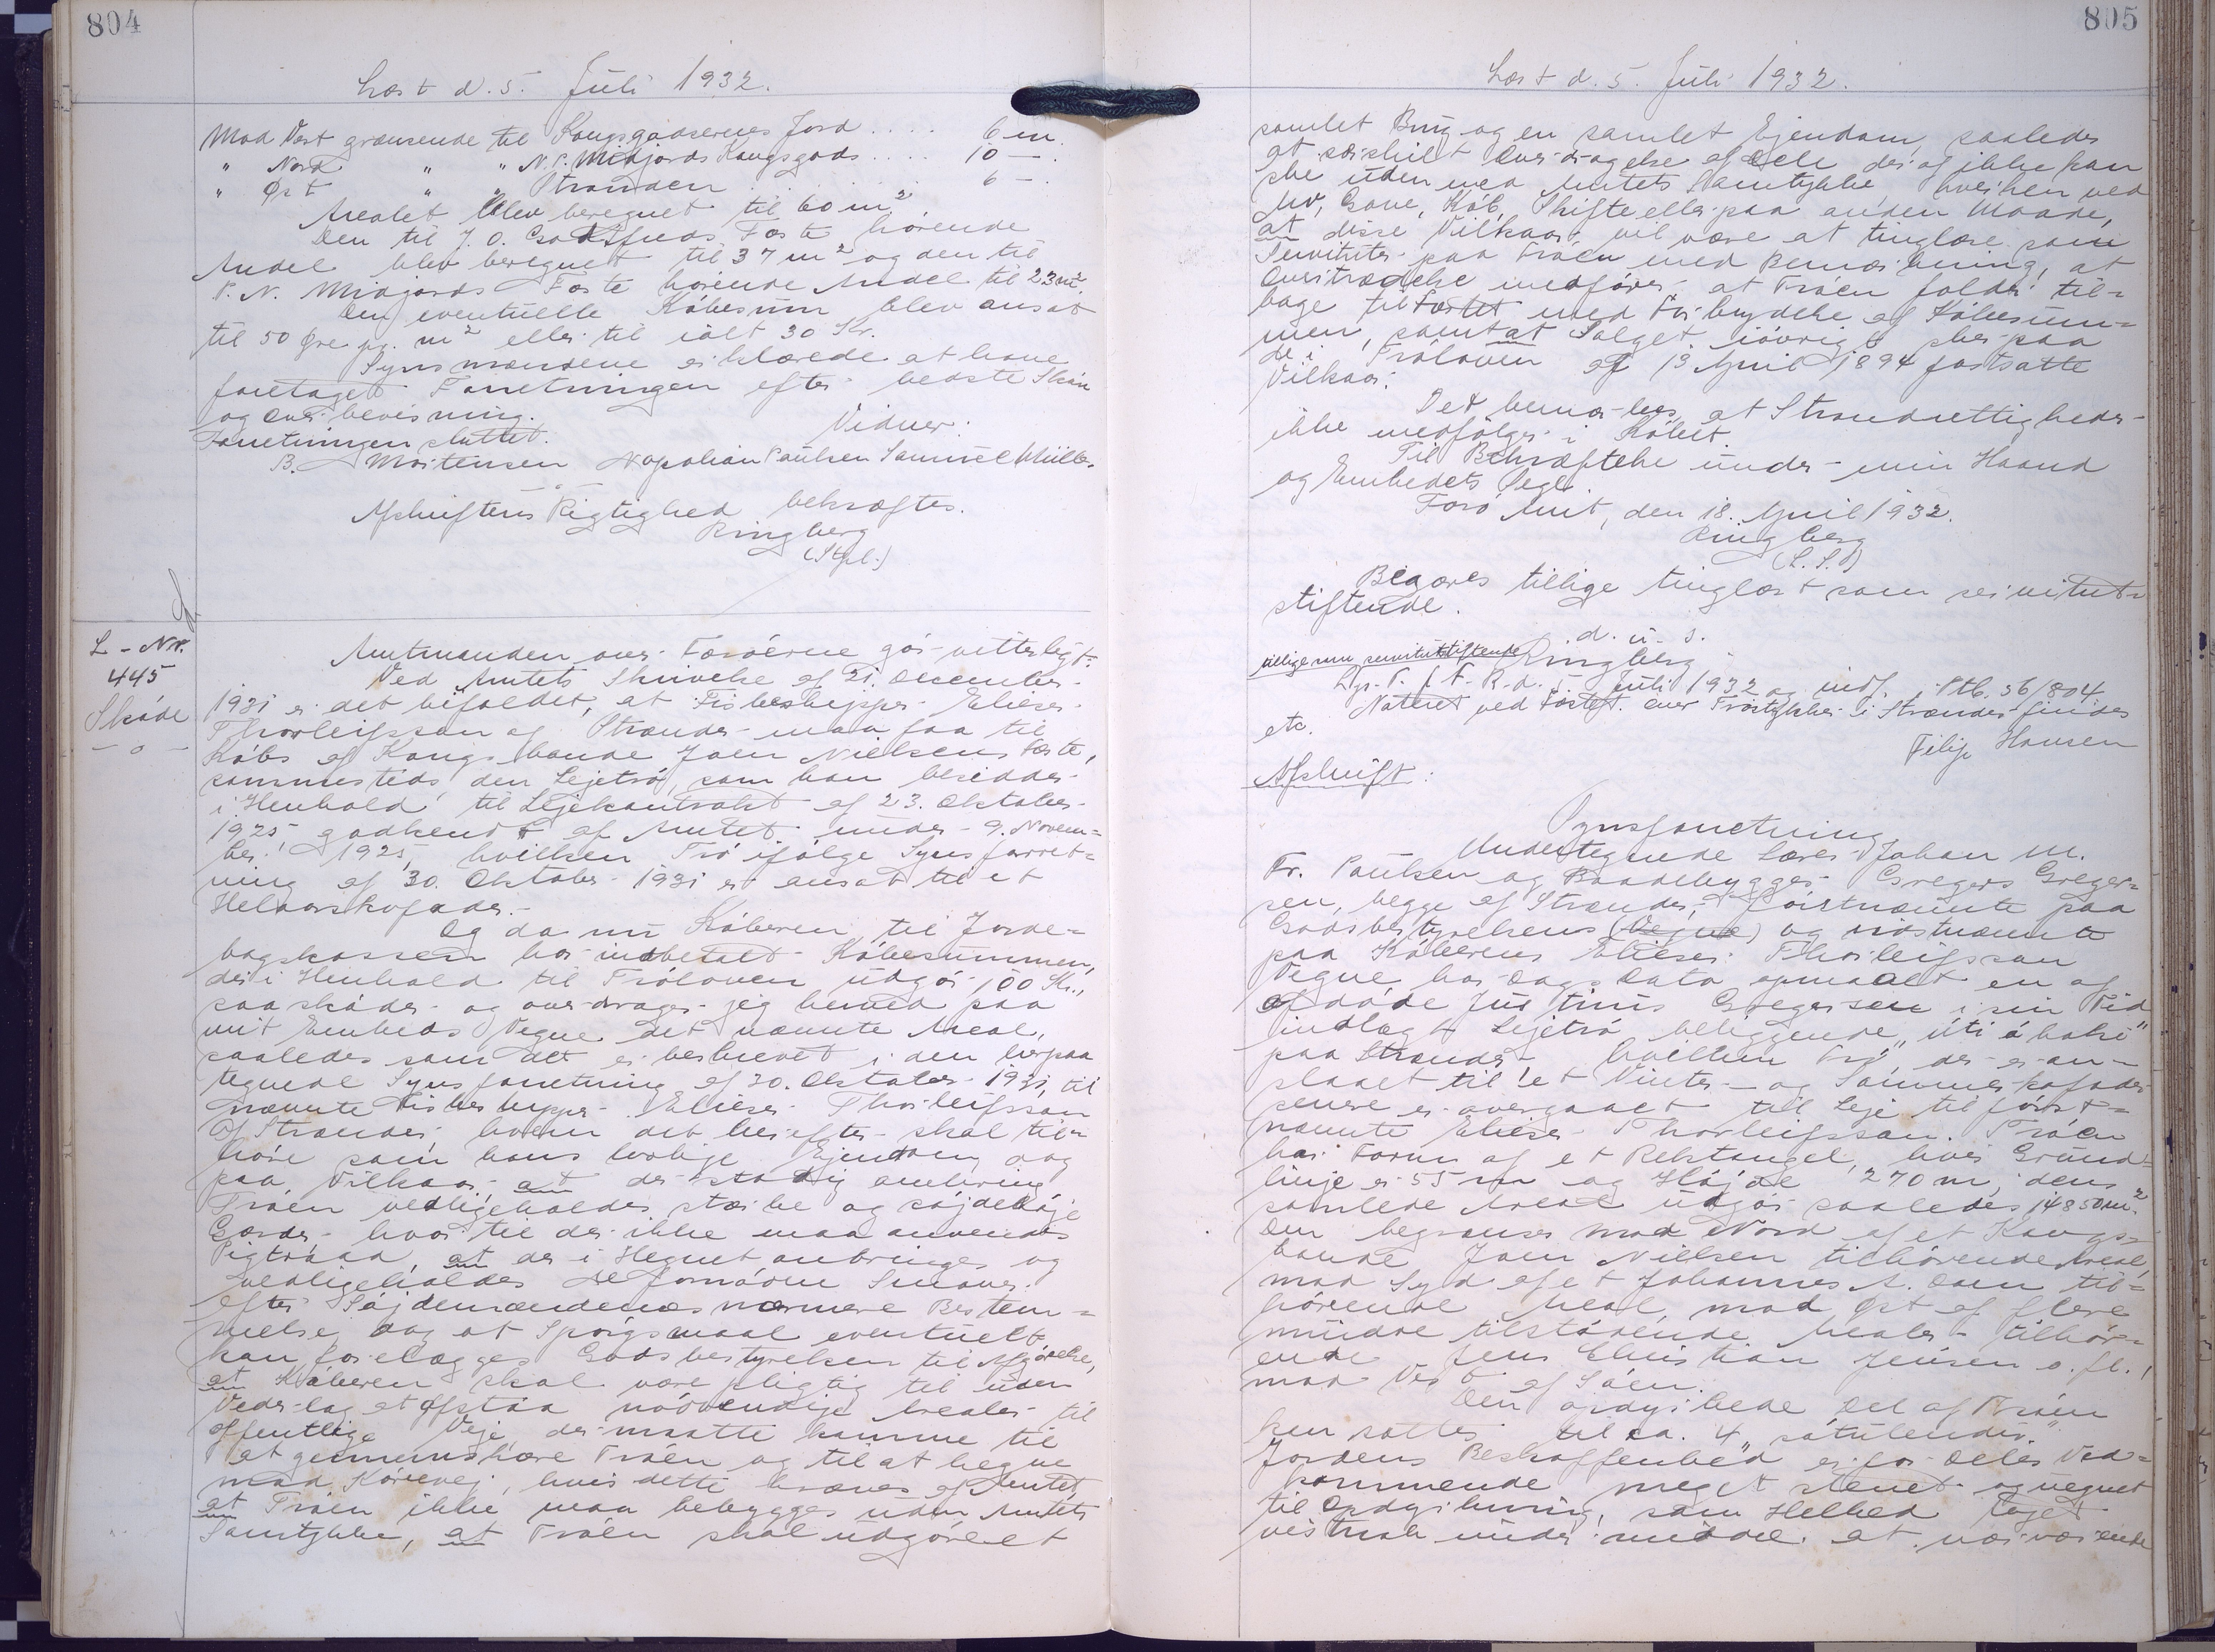 804
Læst d. 5. Juli 1932.
Mod Vest grænsende til Kongsgodsernes Jord .... 6 m.
" Nord " " N. P. Midjords Kongsgods .... 10 —.
" Øst " " Stranden ........ 6 —.
Arealet blev beregnet til 60 m²
Den til J. O. Godtfreds Fæste hørende
Andel blev beregnet til 37 m² og den til
P. N. Midjords Fæste hørende Andel til 23 m².
Den eventuelle Købesum blev ansat
til 50 Øre pr. m² eller til ialt 30 Kr.
Synsmændene erklærede at have
foretaget Forretningen efter bedste Skøn
og Overbevisning.
Forretningen sluttet. Vidner:
B. Mortensen Napolian Paulsen Samuel Müller.
Afskriftens Rigtighed bekræftes.
Ringberg
(Stpl.)
L - Nr.
445
Skøde
— o —
Amtmanden over Færøerne gør vitterligt:
Ved Amtets Skrivelse af 21. December
1931 er det bifaldet, at Fiskeskipper Elieser
Thorleifsson af Strænder maa faa til
Købs af Kongsbonde Joen Nielsens Fæste,
sammesteds den Lejetrø, som han besidder
i Henhold til Lejekontrakt af 23. Oktober
1925 godkendt af Amtet under 9. Novem=
ber 1925, hvilken Trø ifølge Synsforret=
ning af 30. Oktober 1931 er ansat til et
Helaarskofoder.-
Og da nu Køberen til Jorde=
bogskassen har indbetalt Købesummen,
der i Henhold til Trøloven udgør 100 Kr.,
saa skøder og overdrager jeg herved paa
mit Embeds Vegne det nævnte Areal,
saaledes som det er beskrevet i den herpaa
tegnede Synsforretning af 30. Oktober 1931, til
nævnte Fiskeskipper Elieser Thorleifsson
af Strænder, hvem det herefter skal til=
høre som hans lovlige Ejendom, dog
paa Vilkaar, at der stadig omkring
Trøen vedligeholdes stærke og søjdehøje
Gærder hvortil der ikke maa anvendes
Pigtraad, at der i Hegnet anbringes og
vedligeholdes de fornødne Smover
efter Søjdemændenes nærmere Bestem=
melse, dog at Spørgsmaal eventuelt
kan forelægges Godsbestyrelsen til Afgørelse,
at Køberen skal være pligtig til uden
Vederlag at afstaa nødvendige Arealer til
offentlige Veje der maatte komme til
at gennemskære Trøen og til at hegne
mod Kørevej, hvis dette kræves af Amtet,
at Trøen ikke maa bebygges uden Amtets
Samtykke, at Trøen skal udgøre et
805
Læst d. 5. Juli 1932.
samlet Brug og en samlet Ejendom, saaledes
at særskilt Overdragelse af Dele deraf ikke kan
ske uden med Amtets Samtykke, hverken ved
Arv, Gave, Køb, Skifte eller paa anden Maade,
at disse Vilkaar vil være at tinglæse som
Servitutter paa Trøen med Bemærkning, at
Overtrædelse medfører at Trøen falder til=
bage til Fæstet med Fortrydelse af Købesum=
men, samt at Salget iøvrigt sker paa
de i Trøloven af 13 April 1894 fastsatte
Vilkaar.
Det bemærkes, at Strandrettigheder
ikke medfølger i Købet.
Til Bekræftelse under min Haand
og Embedets Segl
Færø Amt, den 18. April 1932.
Ringberg
(L. S.)
Begæres tillige tinglæst som servitut=
stiftende.
d. u. s.
Ringberg
tillige som servitutstiftende
Dgs. P. f. F. R. d. 5 Juli 1932 og indf. i Ptb. 36/804
Noteret ved Fæstet. Over Trøstykker i Strænder findes
etc.
Filip Hansen
Afskrift:
Synsforretning.
Undertegnede Lærer Johan M.
Fr. Poulsen og Baadebygger Gregers Greger=
sen, begge af Strænder, førstnævnte paa
Godsbestyrelsens (Vegne) og sidstnævnte
paa Køberens Elieser Thorleifsson
Vegne har Dags Dato opmaalt en af
afdøde Justinus Gregersen i sin Tid
indlagt Lejetrø beliggende „úti á bakø"
paa Strænder, hvilken Trø, der er an=
slaaet til et Vinter- og Sommerkofoder
senere er overgaaet til Leje til først=
nævnte Elieser Thorleifsson. Trøen
har Form af et Rektangel, hvis Grund=
linje er 55 m og Højde 270 m, dens
samlede Areal udgør saaledes 14850 m².
Den begrænses mod Nord af et Kongs=
bonde Joen Nielsen tilhørende Areal,
mod Syd af et Johannes A. Dam til=
hørende Areal, mod Øst af flere
mindre tilstødende Arealer tilhør=
ende Jens Christian Jensen o. fl.,
mod Vest af Søen.
Den opdyrkede Del af Trøen
kan sættes til ca. 4 „sátulendir."
Jordens Beskaffenhed er for Deles Ved=
kommende meget stenet og uegnet
til Opdyrkning, som Helhed taget
vistnok under middel at nærværende